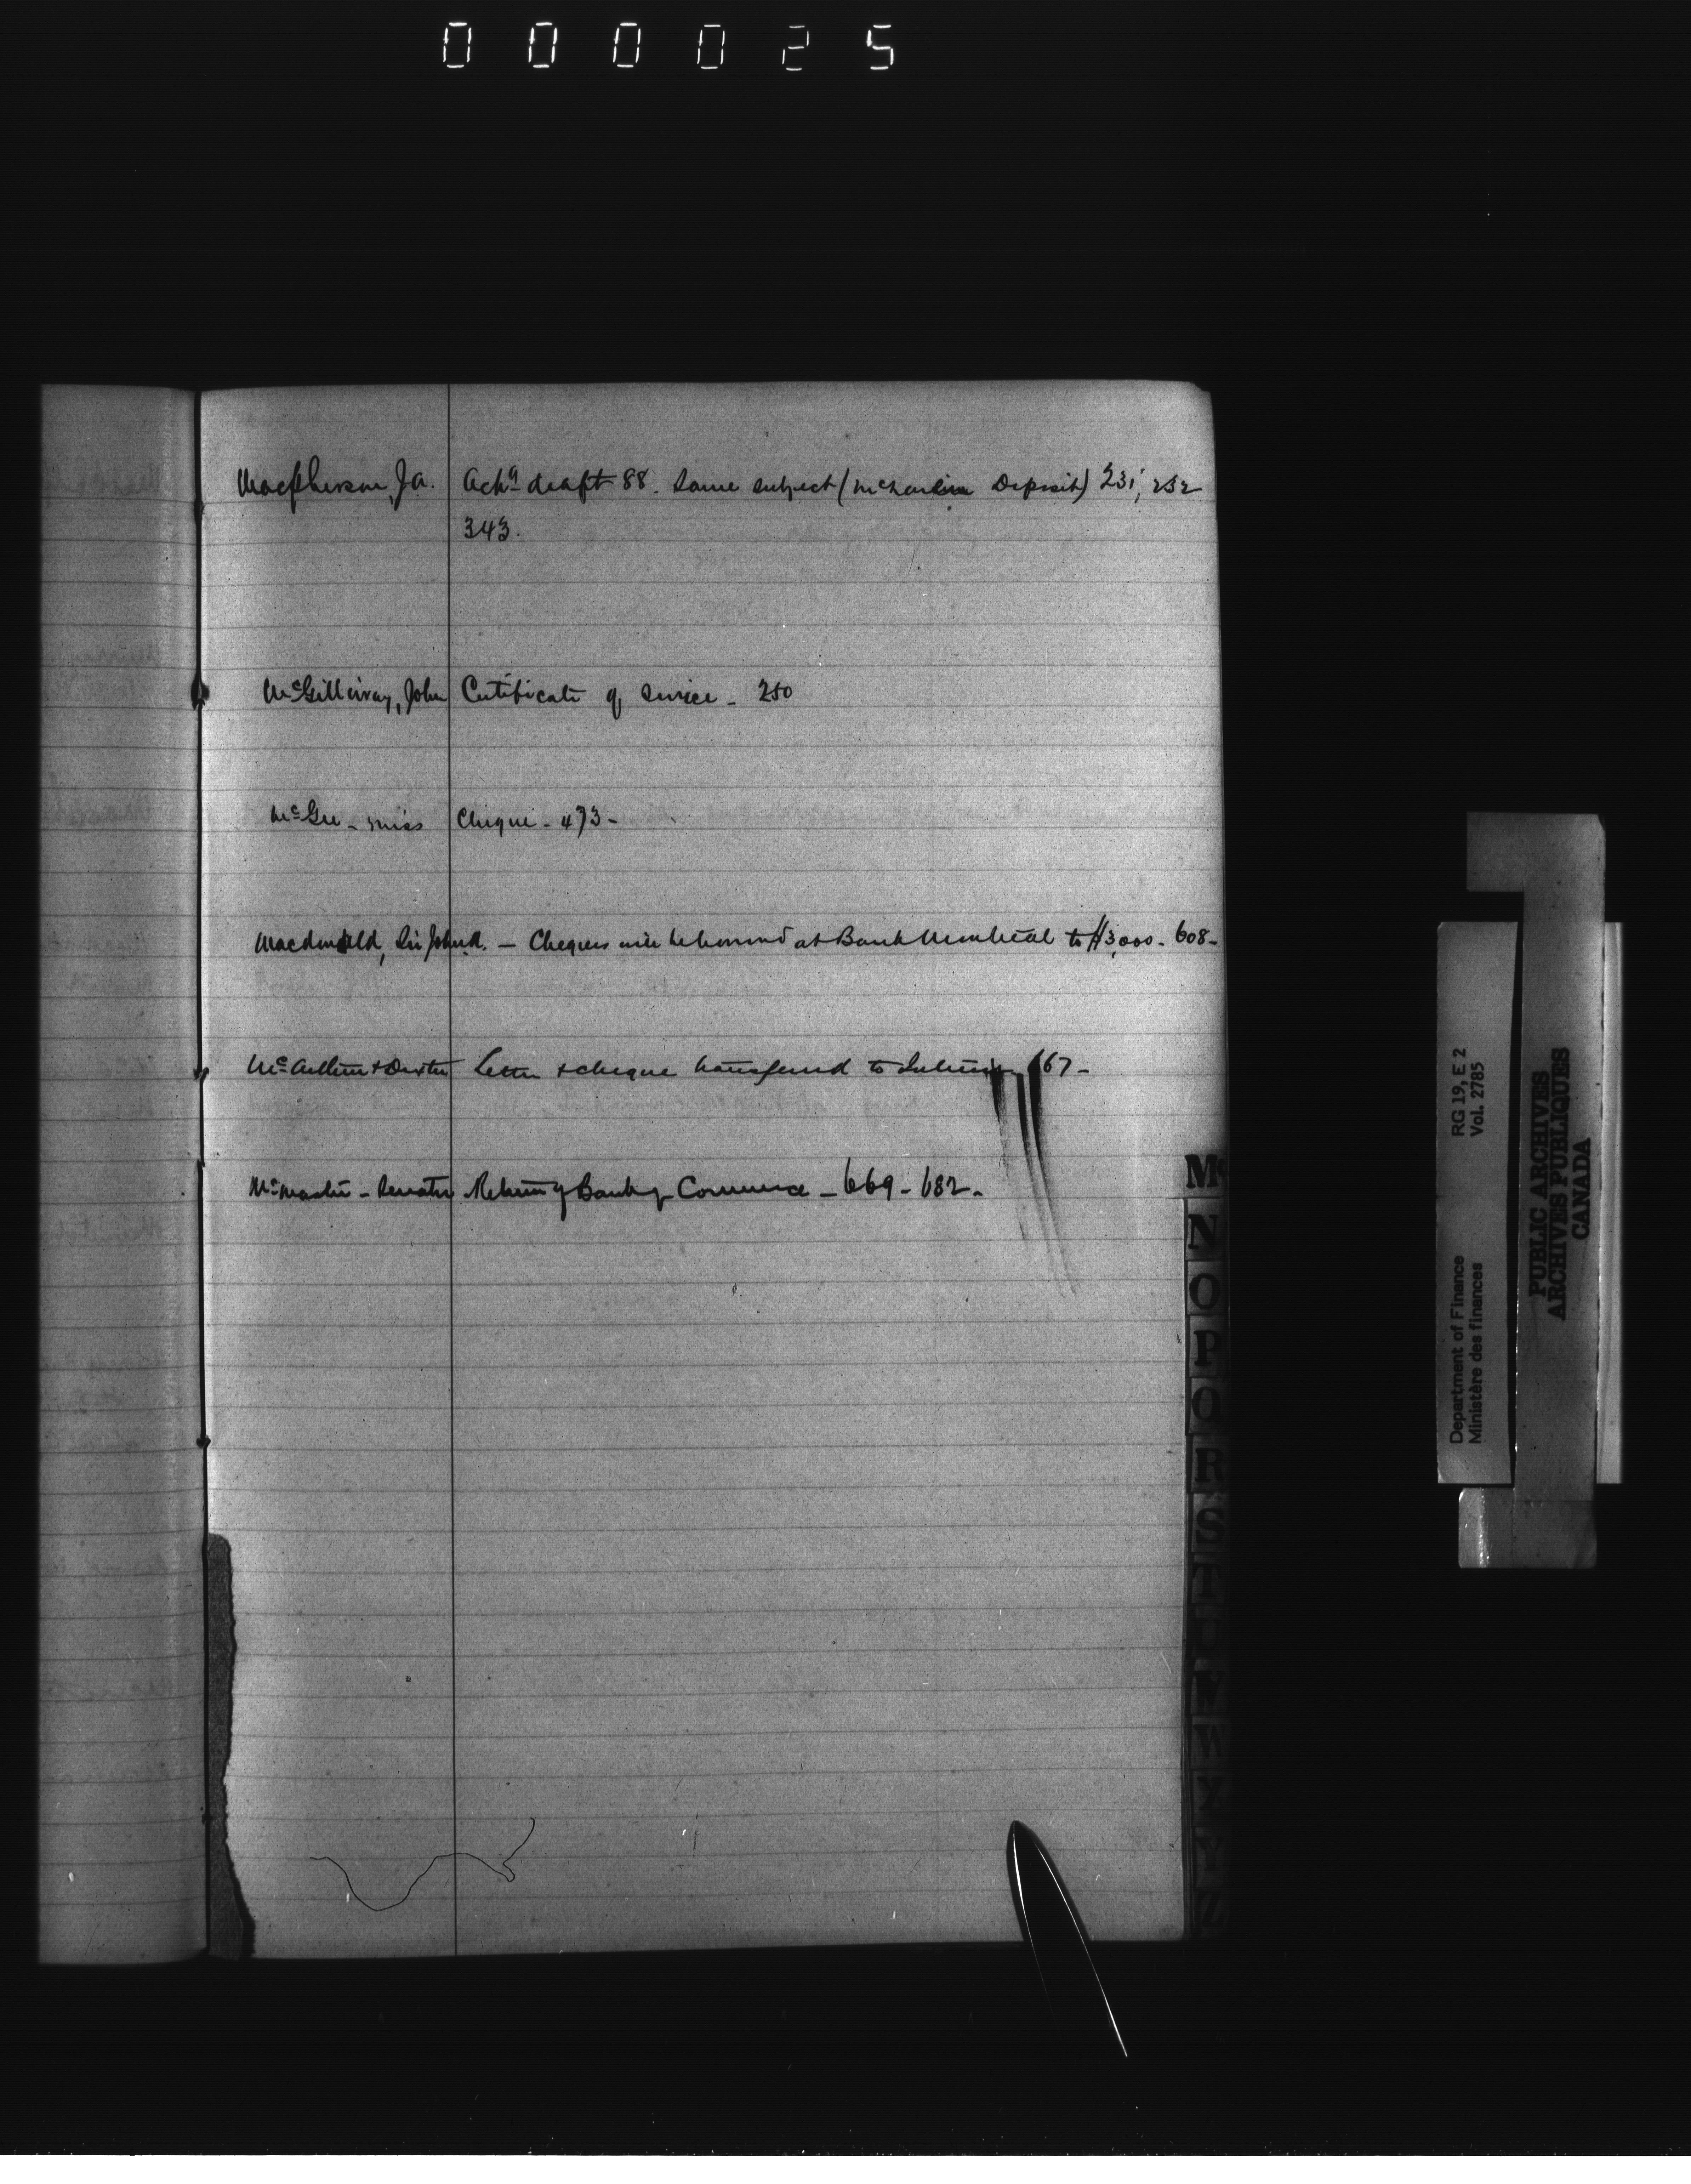 000025
Macpherson, J.A. Ackg draft 88. Same subject ( Deposit) 231, 232
343.
McGillivray, John Certificate of Service - 250
McGee - Miss Cheque - 473 -
Macdonald, Sir John A. - Cheques will be honored at Bank Montreal to $3,000 - 608 -
Letter & cheque transferred to Interior 667 -
McMaster - Senator Return of Bank of Commerce - 669 - 682 -
Mc
N
O
P
Q
R
S
T
U
V
W
X
Y
Z
Department of Finance RG 19, E 2
Ministère des finances Vol. 2785
PUBLIC ARCHIVES
ARCHIVES PUBLIQUES
CANADA